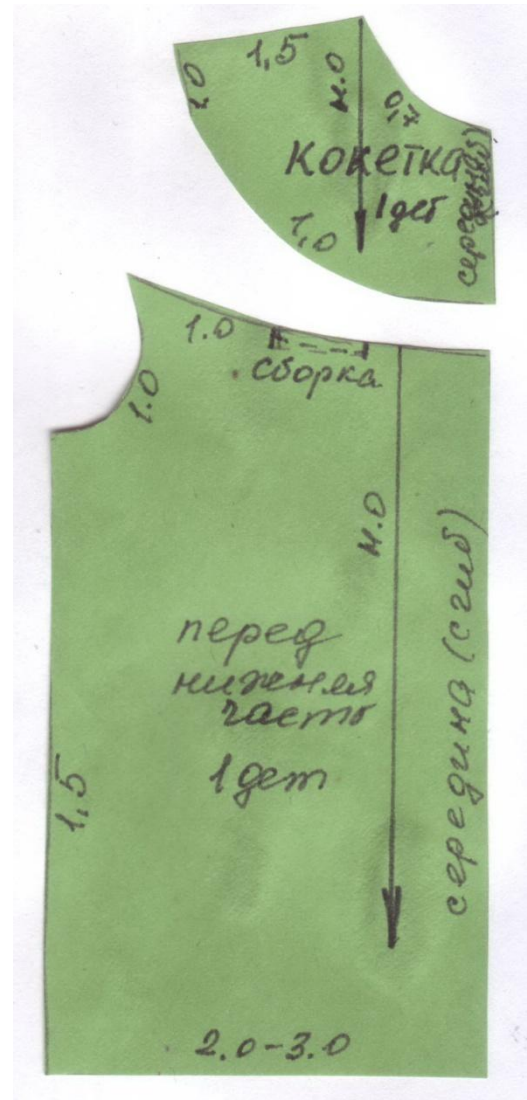 1,5
1.0
н.о
0,7
кокетка
1 дет
1,0
середина
1.0
сборка
1.0
н.о
перед
нижняя
часть
1 дет
середина (сгиб)
1,5
2.0-3.0